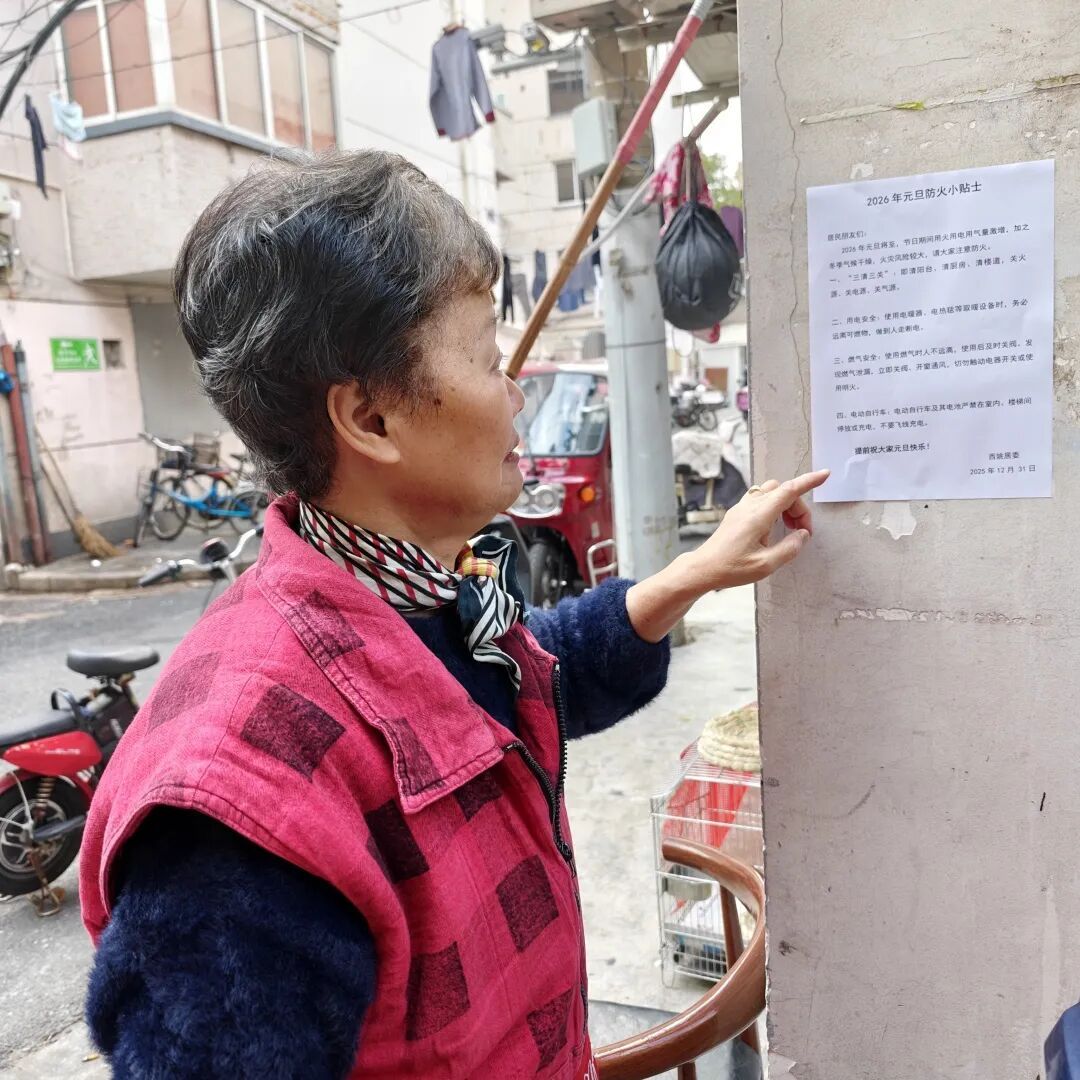 2026年元旦防火小贴士
居民朋友们:
2026年元旦将至,节日期间用火用电用气量激增,加之
冬季气候干燥,火灾风险较大,请大家注意防火。
一、"三清三关":即清阳台、清厨房、清楼道,关火
源、关电源、关气源。
二、用电安全:使用电暖器、电热毯等取暖设备时,务必
远离可燃物,做到人走断电。
三、燃气安全:使用燃气时人不远离,使用后及时关阀。发
现燃气泄漏,立即关阀、开窗通风,切勿触动电器开关或使
用明火。
四、电动自行车:电动自行车及其电池严禁在室内、楼梯间
停放或充电,不要飞线充电。
提前祝大家元旦快乐!
西姚居委
2025年12月31日